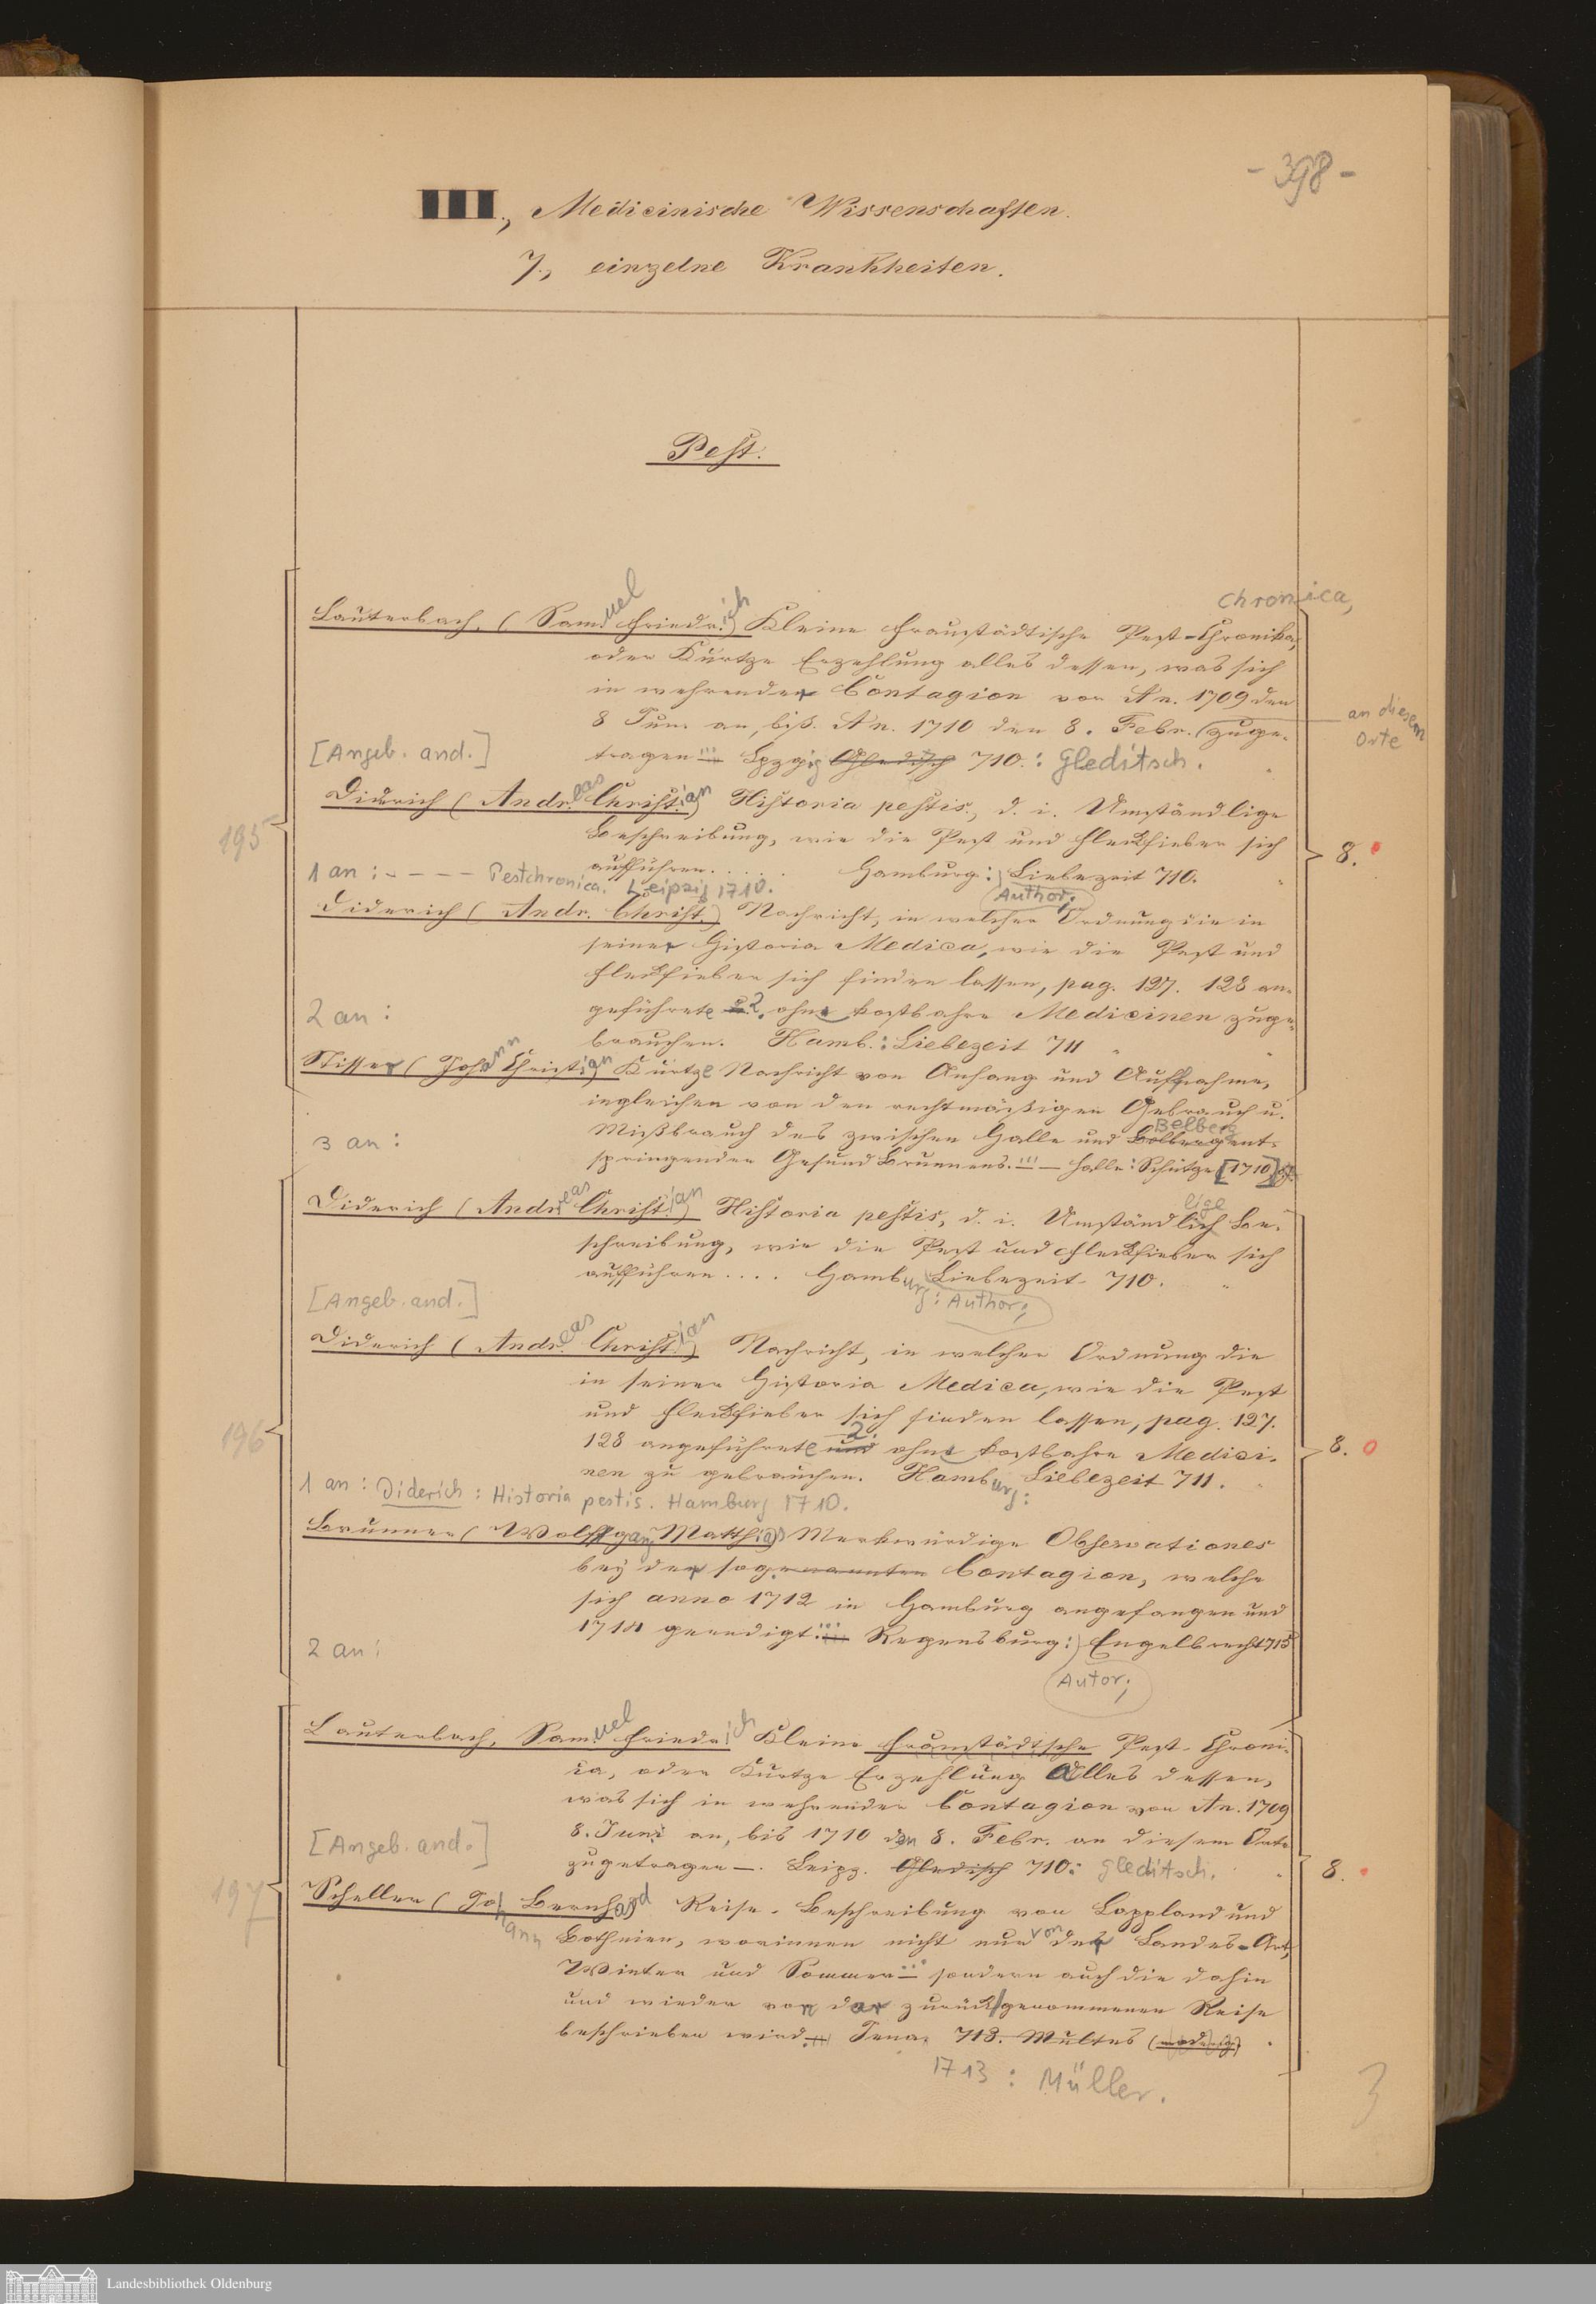 - 398 -
III., Medicinische Wissenschaften.
7., einzelne Krankheiten.
Pest.
chronica,
Lauterbach, (Samuel Friedrich) Kleine Fraustädtische Pest-Chronika,
oder Kurtze Erzehlung alles dessen, was sich
in wehrender Contagion von An. 1709 den
8 Juni an, biß An. 1710 den 8. Febr. (zuge-
an diesem
Orte
[Angeb. and.]
tragen ... Lpzg Gleditsch 710.: Gleditsch.
195
Diderich (Andreas Christian) Historia pestis, d. i. Umständlige
Beschreibung, wie die Pest und Fleckfieber sich
8.
aufführen..... Hamburg: Liebezeit 710.
1 an: - - - - Pestchronica. Leipzig 1710.
Author;
Diderich (Andr. Christ.) Nachricht, in welcher Ordnung die in
seiner Historia Medica, wie die Pest und
Fleckfieber sich finden lassen, pag. 127. 128 an-
2 an:
geführete u. 2. ohne kostbahre Medicinen zuge-
brauchen. Hamb.: Liebezeit 711
Stisser (Johann Christian) Kurtze Nachricht von Anfang und Aufnahme,
ingleichen von den rechtmäßigen Gebrauch u.
Belberg
3 an:
Mißbrauch des zwischen Halle und Bolberg ent-
springenden Gesund Brunnens. ... - Halle: Schütze [1710]
Diderich (Andreas Christian) Historia pestis, d. i. Umständlich Be-
lige
schreibung, wie die Pest und Fleckfieber sich
aufführen.... Hamburg Liebezeit 710.
[Angeb. and.]
: Author;
Diderich (Andreas Christian) Nachricht, in welcher Ordnung die
in seiner Historia Medica, wie die Pest
und Fleckfieber sich finden lassen, pag. 127.
196
2.
128 angeführete und ohne kostbahre Medici-
8.
nen zu gebrauchen. Hamburg: Liebezeit 711.
1 an: Diderich: Historia pestis. Hamburg 1710.
Brunner (Wolffgang Matthias) Merkwürdige Observationes
bey der sogenannten Contagion, welche
sich anno 1712 in Hamburg angefangen und
2 an:
1714 geendigt ... Regensburg: Engelbrecht 715
Autor;
Lauterbach, Samuel Friedrich Kleine Fraustädtsche Pest-Chroni-
ca, oder Kurtze Erzehlung Alles dessen,
was sich in wehrender Contagion von An. 1709
8. Juni an, bis 1710 den 8. Febr. an diesem Orte
[Angeb. and.]
zugetragen —. Leipz. Gleditsch 710: Gleditsch.
197
8.
Scheller (Johann Bernhard) Reise-Beschreibung von Lappland und
Bothnien, worinnen nicht nur von der Landes-Art,
Winter und Sommer ... sondern auch die dahin
und wieder von dar zurückgenommenen Reise
beschrieben wird ... Jena 713.
1713: Müller.
3
Landesbibliothek Oldenburg